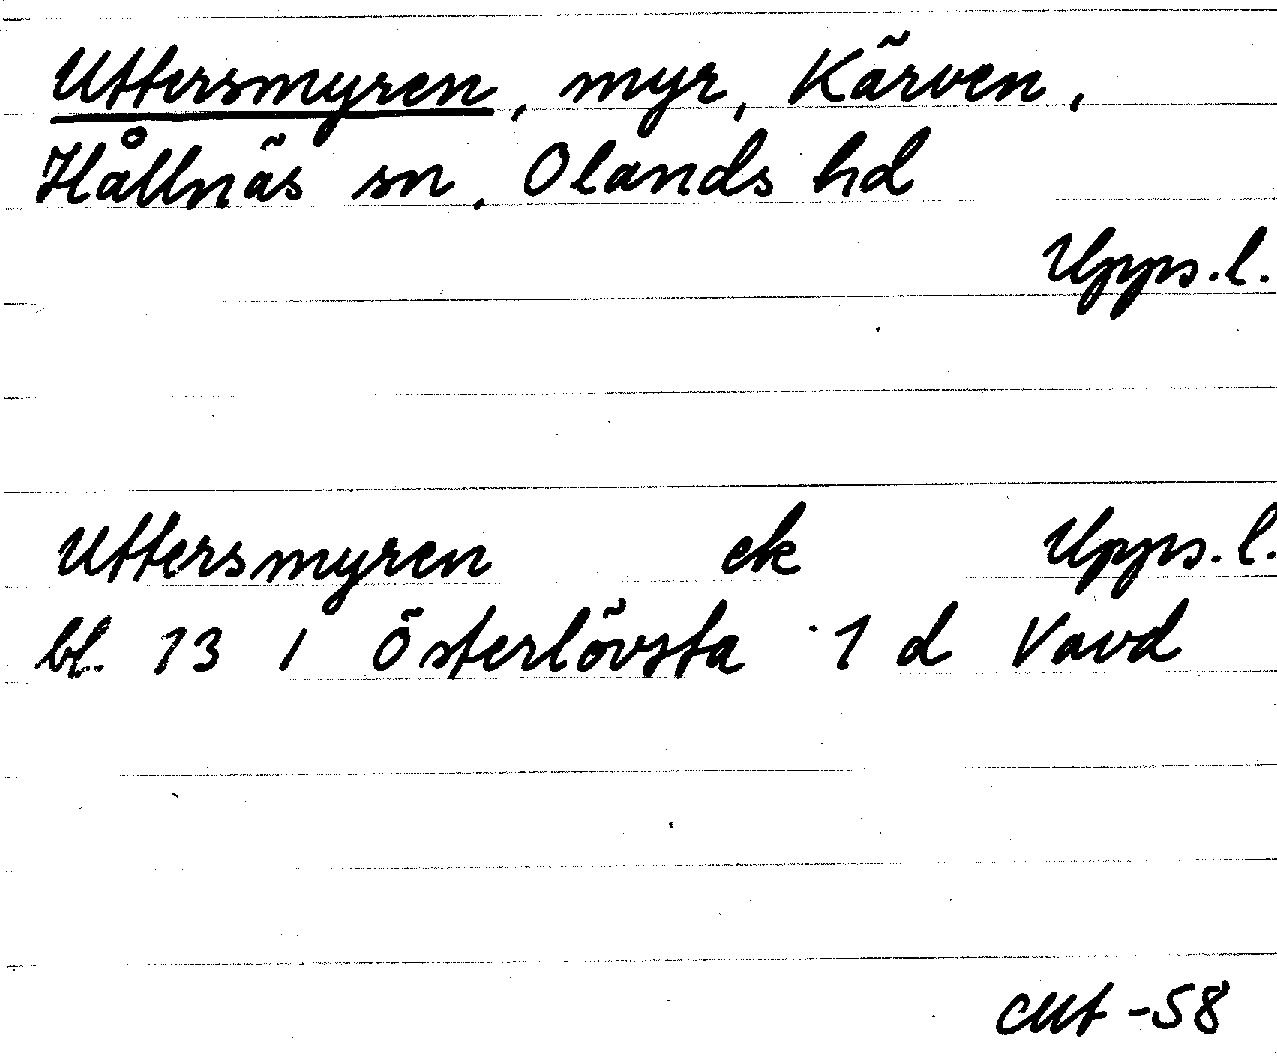 Uttersmyren, myr, Kärven,
Hållnäs sn, Olands hd
Upps.l.
Uttersmyren ek Upps.l.
bl. 13 i Österlövsta 1 d Vavd
-58